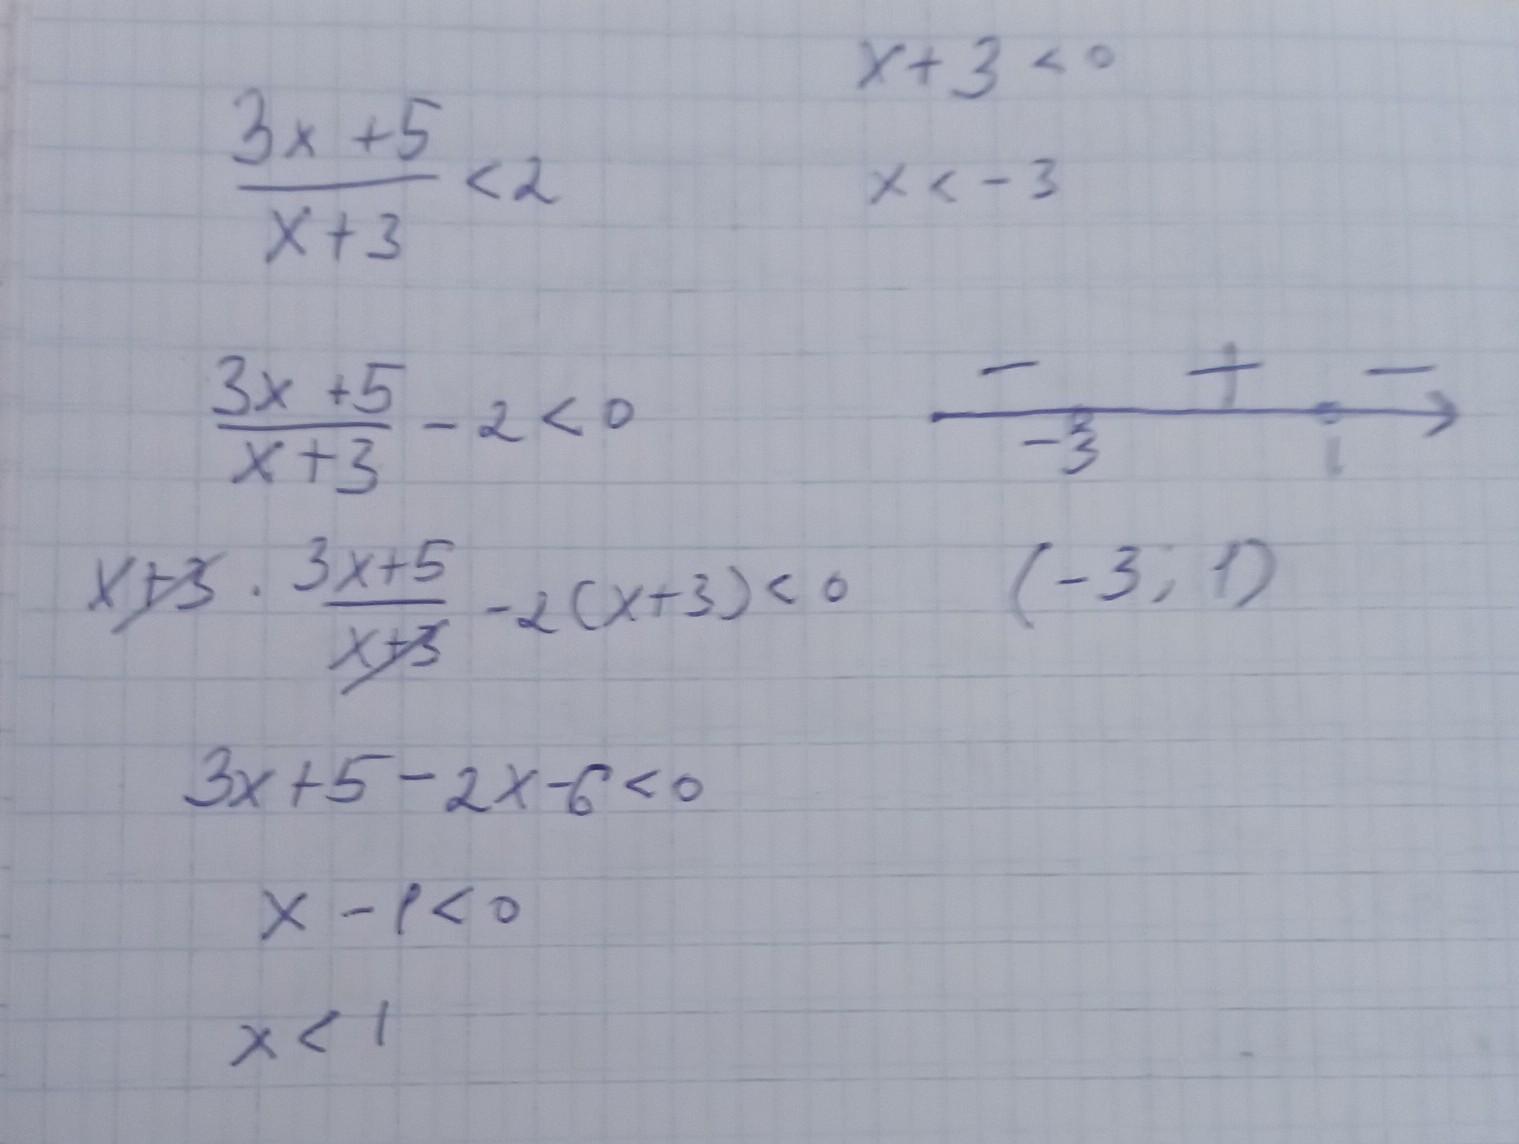 (3x+5)/(x+3) < 2
(3x+5)/(x+3) - 2 < 0
x+3 · (3x+5)/(x+3) - 2(x+3) < 0
3x+5-2x-6<0
x-1<0
x<1
x+3<0
x<-3
- + -
-3 1
(-3; 1)